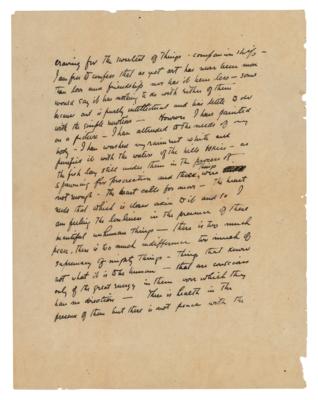 craving for the sweetest of things - companionship -
I am free to confess that as yet art has never been more
than love and friendship nor has it been less - some
would say it has nothing to do with either of them
because art is purely intellectual and has little to do
with the simple emotions - However I have painted
on a picture - I have attended to the needs of my
body - I have washed my raiment white and
purified it with the waters of the hills as
the fish lay still under them in the process of
spawning for procreation and these things were
not enough - the heart calls for more - the heart
needs that which is closer akin to it and so I
am feeling the loneliness in the presence of these
beautiful unhuman things - there is too much
peace, there is too much indifference too much of
supremacy of mighty things - things that know
not what it is to be human - that are conscious
only of the great energy in them over which they
have no direction - There is health in the
presence of them but there is not peace with the